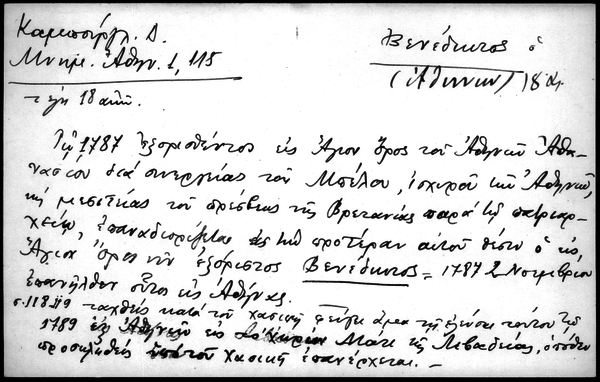 Καμπούργλ. Δ.
Μνημ. Ἀθην. 1, 115
Βενέδικτος ὁ
(Ἀθηνῶν) 18 αἰ.
τέλη 18 αἰῶν.
Τῷ 1787 ἐξορισθέντος εἰς Ἅγιον Ὄρος τοῦ Ἀθηνῶν Ἀθα-
νασίου διὰ συνεργίας τοῦ Μπέλου, ἰσχυροῦ ἐν Ἀθήναις,
τῇ μεσιτείᾳ τοῦ πρέσβεως τῆς Βρετανίας παρὰ τῷ πατριαρ-
χείῳ, ἐπαναδιορίζεται εἰς τὴν προτέραν αὐτοῦ θέσιν ὁ εἰς
Ἅγιον Ὄρος νῦν ἐξόριστος Βενέδικτος = 1787 2 Νοεμβρίου
ἐπανῆλθεν οὗτος εἰς Ἀθήνας.
σ. 118 ταχθεὶς κατὰ τοῦ Χασεκῆ φεύγει ἅμα τῇ ἐλεύσει τούτου τῷ
1789 ἐξ Ἀθηνῶν εἰς χωρίον Μάζι τῆς Λεβαδείας, ὁπόθεν
προσκληθεὶς ὑπὸ τοῦ Χασεκῆ ἐπανέρχεται. –